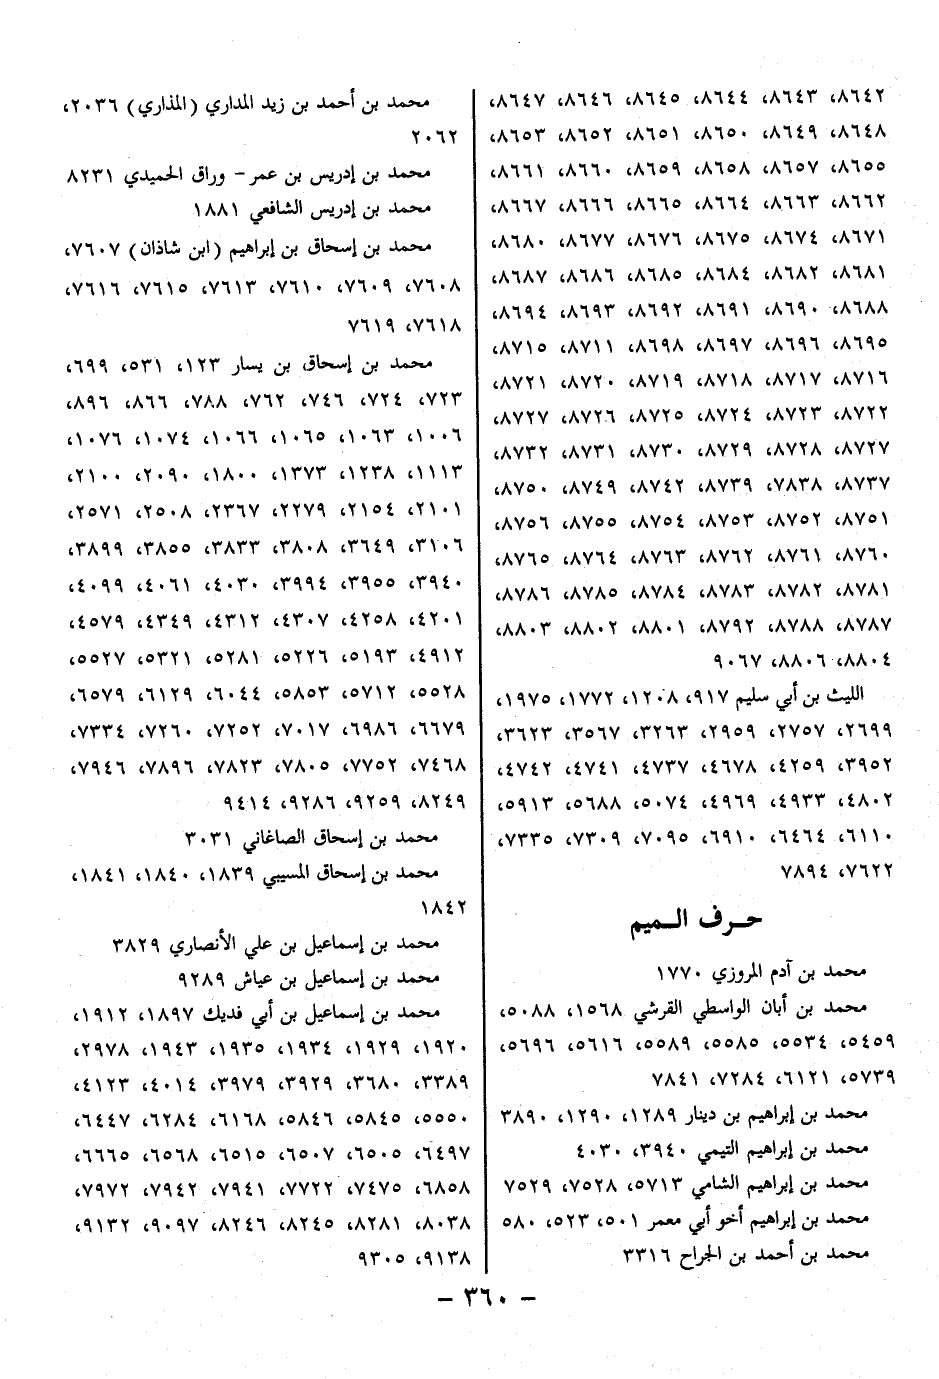 ٨٦٤٢، ٨٦٤٣، ٨٦٤٤، ٨٦٤٥، ٨٦٤٦، ٨٦٤٧،
٨٦٤٨، ٨٦٤٩، ٨٦٥٠، ٨٦٥١، ٨٦٥٢، ٨٦٥٣،
٨٦٥٥، ٨٦٥٧، ٨٦٥٨، ٨٦٥٩، ٨٦٦٠، ٨٦٦١،
٨٦٦٢، ٨٦٦٣، ٨٦٦٤، ٨٦٦٥، ٨٦٦٦، ٨٦٦٧،
٨٦٧١، ٨٦٧٤، ٨٦٧٥، ٨٦٧٦، ٨٦٧٧، ٨٦٨٠،
٨٦٨١، ٨٦٨٢، ٨٦٨٤، ٨٦٨٥، ٨٦٨٦، ٨٦٨٧،
٨٦٨٨، ٨٦٩٠، ٨٦٩١، ٨٦٩٢، ٨٦٩٣، ٨٦٩٤،
٨٦٩٥، ٨٦٩٦، ٨٦٩٧، ٨٦٩٨، ٨٧١١، ٨٧١٥،
٨٧١٦، ٨٧١٧، ٨٧١٨، ٨٧١٩، ٨٧٢٠، ٨٧٢١،
٨٧٢٢، ٨٧٢٣، ٨٧٢٤، ٨٧٢٥، ٨٧٢٦، ٨٧٢٧،
٨٧٢٧، ٨٧٢٨، ٨٧٢٩، ٨٧٣٠، ٨٧٣١، ٨٧٣٢،
٨٧٣٧، ٧٨٣٨، ٨٧٣٩، ٨٧٤٢، ٨٧٤٩، ٨٧٥٠،
٨٧٥١، ٨٧٥٢، ٨٧٥٣، ٨٧٥٤، ٨٧٥٥، ٨٧٥٦،
٨٧٦٠، ٨٧٦١، ٨٧٦٢، ٨٧٦٣، ٨٧٦٤، ٨٧٦٥،
٨٧٨١، ٨٧٨٢، ٨٧٨٣، ٨٧٨٤، ٨٧٨٥، ٨٧٨٦،
٨٧٨٧، ٨٧٨٨، ٨٧٩٢، ٨٨٠١، ٨٨٠٢، ٨٨٠٣،
٨٨٠٤، ٨٨٠٦، ٩٠٦٧
الليث بن أبي سليم ٩١٧، ١٢٠٨، ١٧٧٢، ١٩٧٥،
٢٦٩٩، ٢٧٥٧، ٢٩٥٩، ٣٢٦٣، ٣٥٦٧، ٣٦٢٣،
٣٩٥٢، ٤٢٥٩، ٤٦٧٨، ٤٧٣٧، ٤٧٤١، ٤٧٤٢،
٤٨٠٢، ٤٩٣٣، ٤٩٦٩، ٥٠٧٤، ٥٦٨٨، ٥٩١٣،
٦١١٠، ٦٤٦٤، ٦٩١٠، ٧٠٩٥، ٧٣٠٩، ٧٣٣٥،
٧٦٢٢، ٧٨٩٤
حرف الميم
محمد بن آدم المروزي ١٧٧٠
محمد بن أبان الواسطي القرشي ١٥٦٨، ٥٠٨٨،
٥٤٥٩، ٥٥٣٤، ٥٥٨٥، ٥٥٨٩، ٥٦١٦، ٥٦٩٦،
٥٧٣٩، ٦١٢١، ٧٢٨٤، ٧٨٤١
محمد بن إبراهيم بن دينار ١٢٨٩، ١٢٩٠، ٣٨٩٠
محمد بن إبراهيم التيمي ٣٩٤٠، ٤٠٣٠
محمد بن إبراهيم الشامي ٥٧١٣، ٧٥٢٨، ٧٥٢٩
محمد بن إبراهيم أخو أبي معمر ٥٠١، ٥٢٣، ٥٨٠
محمد بن أحمد بن الجراح ٣٣١٦
محمد بن أحمد بن زيد المداري (المذاري) ٢٠٣٦،
٢٠٦٢
محمد بن إدريس بن عمر- وراق الحميدي ٨٢٣١
محمد بن إدريس الشافعي ١٨٨١
محمد بن إسحاق بن إبراهيم (ابن شاذان) ٧٦٠٧،
٧٦٠٨، ٧٦٠٩، ٧٦١٠، ٧٦١٣، ٧٦١٥، ٧٦١٦،
٧٦١٨، ٧٦١٩
محمد بن إسحاق بن يسار ١٢٣، ٥٣١، ٦٩٩،
٧٢٣، ٧٢٤، ٧٤٦، ٧٦٢، ٧٨٨، ٨٦٦، ٨٩٦،
١٠٠٦، ١٠٦٣، ١٠٦٥، ١٠٦٦، ١٠٧٤، ١٠٧٦،
١١١٣، ١٢٣٨، ١٣٧٣، ١٨٠٠، ٢٠٩٠، ٢١٠٠،
٢١٠١، ٢١٥٤، ٢٢٧٩، ٢٣٦٧، ٢٥٠٨، ٢٥٧١،
٣١٠٦، ٣٦٤٩، ٣٨٠٨، ٣٨٣٣، ٣٨٥٥، ٣٨٩٩،
٣٩٤٠، ٣٩٥٥، ٣٩٩٤، ٤٠٣٠، ٤٠٦١، ٤٠٩٩،
٤٢٠١، ٤٢٥٨، ٤٣٠٧، ٤٣١٢، ٤٣٤٩، ٤٥٧٩،
٤٩١٢، ٥١٩٣، ٥٢٢٦، ٥٢٨١، ٥٣٢١، ٥٥٢٧،
٥٥٢٨، ٥٧١٢، ٥٨٥٣، ٦٠٤٤، ٦١٢٩، ٦٥٧٩،
٦٦٧٩، ٦٩٨٦، ٧٠١٧، ٧٢٥٢، ٧٢٦٠، ٧٣٣٤،
٧٤٦٨، ٧٧٥٢، ٧٨٠٥، ٧٨٢٣، ٧٨٩٦، ٧٩٤٦،
٨٢٤٩، ٩٢٥٩، ٩٢٨٦، ٩٤١٤
محمد بن إسحاق الصاغاني ٣٠٣١
محمد بن إسحاق المسيبي ١٨٣٩، ١٨٤٠، ١٨٤١،
١٨٤٢
محمد بن إسماعيل بن علي الأنصاري ٣٨٢٩
محمد بن إسماعيل بن عياش ٩٢٨٩
محمد بن إسماعيل بن أبي فديك ١٨٩٧، ١٩١٢،
١٩٢٠، ١٩٢٩، ١٩٣٤، ١٩٣٥، ١٩٤٣، ٢٩٧٨،
٣٣٨٩، ٣٦٨٠، ٣٩٢٩، ٣٩٧٩، ٤٠١٤، ٤١٢٣،
٥٥٥٠، ٥٨٤٥، ٥٨٤٦، ٦١٦٨، ٦٢٨٤، ٦٤٤٧،
٦٤٩٧، ٦٥٠٥، ٦٥٠٧، ٦٥١٥، ٦٥٦٨، ٦٦٦٥،
٦٨٥٨، ٧٤٧٥، ٧٧٢٢، ٧٩٤١، ٧٩٤٢، ٧٩٧٢،
٨٠٣٨، ٨٢٨١، ٨٢٤٥، ٨٢٤٦، ٩٠٩٧، ٩١٣٢،
٩١٣٨، ٩٣٠٥
- ٣٦٠ -